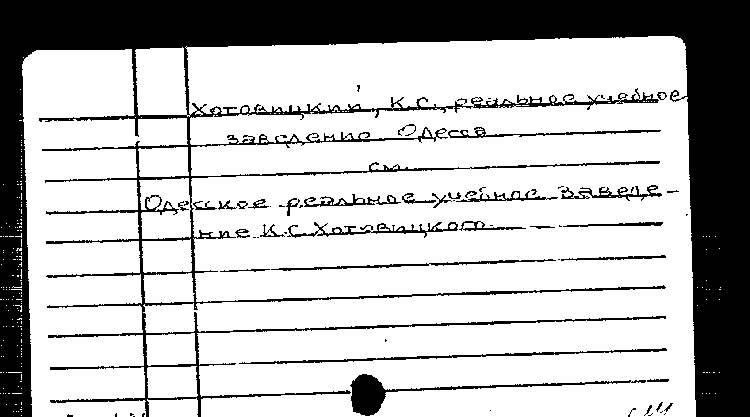 Хотовицкий, К.С., реальное учебное
заведение. Одесса
см.
Одесское реальное учебное заведе-
ние К.С. Хотовицкого.